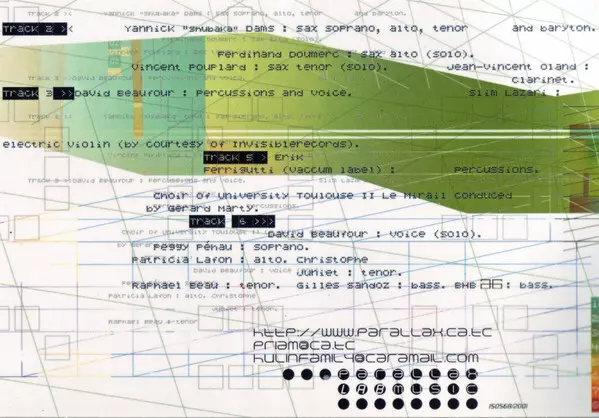 Track 2 >< Yannick "Shubaka" Dams : sax soprano, alto, tenor and baryton.
Ferdinand Doumerc : sax alto (solo).
Vincent Pouplard : sax tenor (solo). Jean-Vincent Oland :
Clarinet.
Track 3 >>David Beaufour : Percussions and voice. Slim Lazari :
electric violin (by courtesy of Invisiblerecords).
Track 5 > Erik
Ferrigutti (vaccum label) : percussions.
Choir of University Toulouse II Le Mirail conduced
by Gerard Marty.
Track 6 >>>
David Beaufour : voice (solo).
Peggy Péhau : soprano.
Patricia Lafon : alto. Christophe
Juniet : tenor.
Raphael Beau : tenor. Gilles Sandoz : bass. BHB a6 : bass.
http://www.parallax.ca.tc
priam@ca.tc
kulinfamily@caramail.com
parallax
LABmusic
ISO568/2001